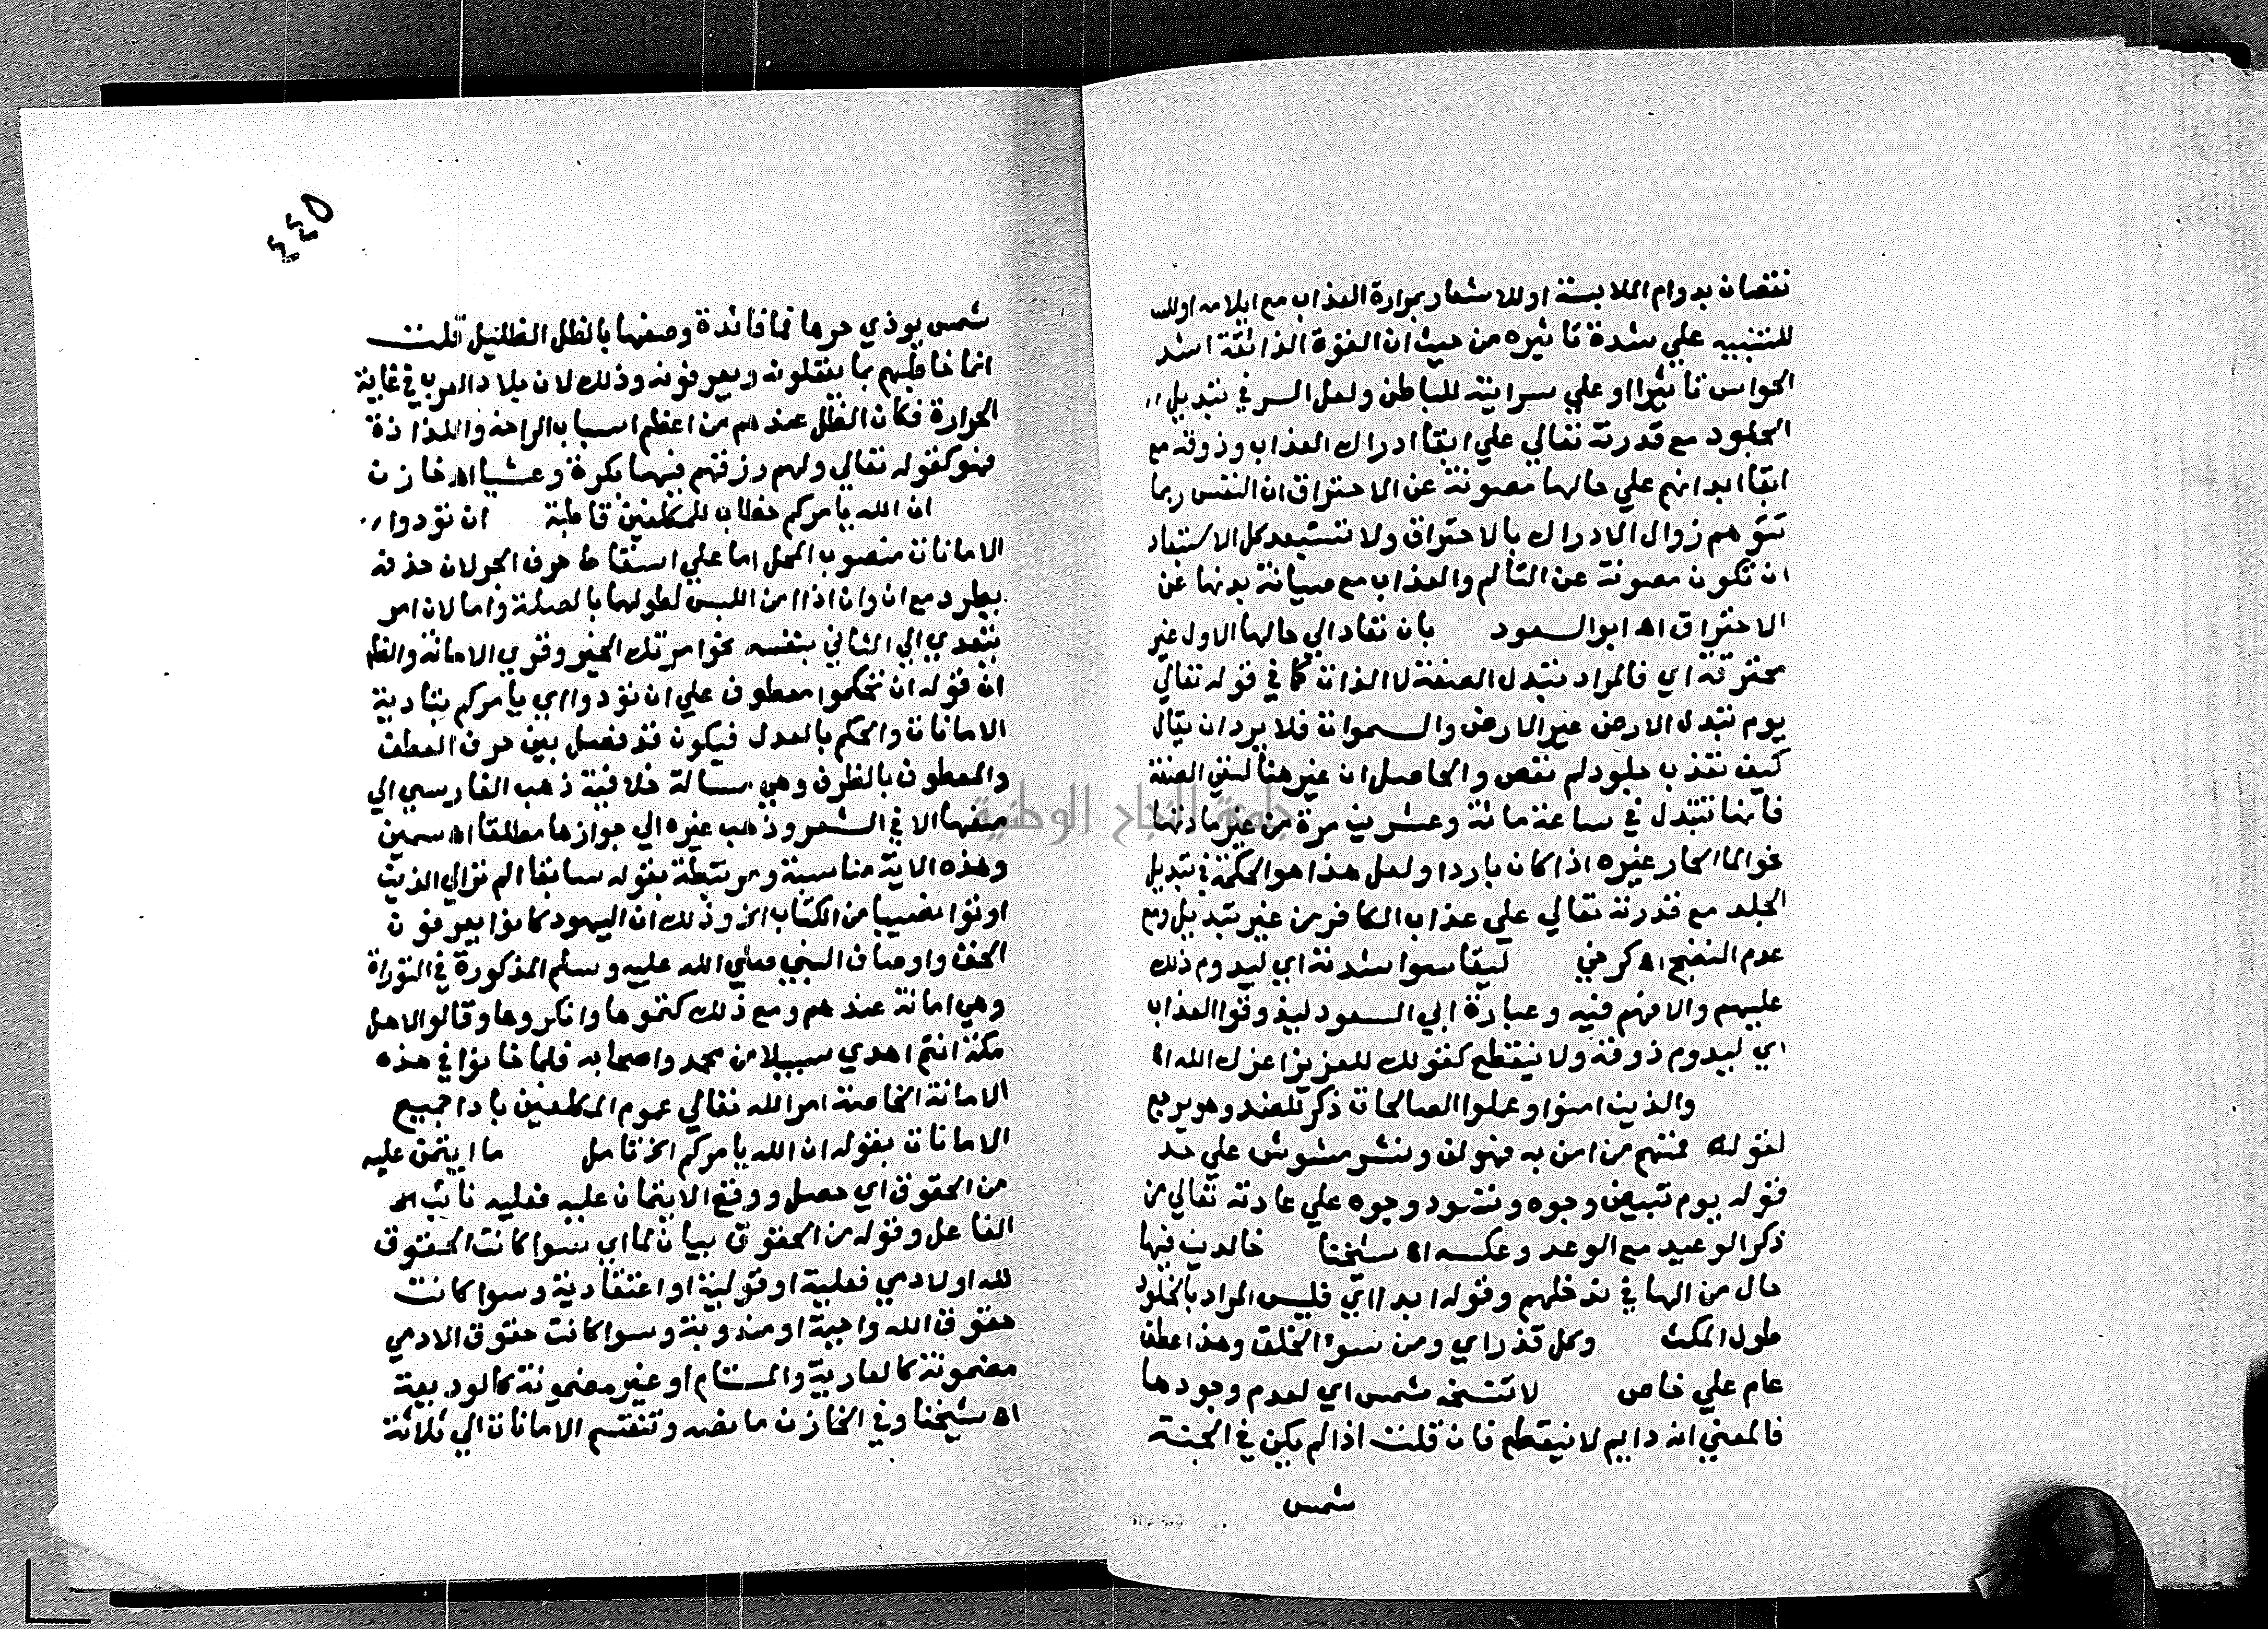 نقصان بدوام الملابسة او للاشعار بمرارة العذاب مع ايلامه او للـ
للتنبيه علي شدة تاثيره من حيث ان القوة الذائقة اشد
الحواس تاثيرا او علي سرايته للباطن ولعل السر في تبديل
الجلود مع قدرته تعالي علي ابقا ادراك العذاب وذوقه مع
ابقا ابدانهم علي حالها مصونة عن الاحتراق ان النفس ربما
تتوهم زوال الادراك بالاحتراق ولا تستبعد كل الاستبعاد
ان تكون مصونة عن التالم والعذاب مع صيانة بدنها عن
الاحتراق اه ابو السعود بان تعاد الي حالها الاول غير
محترقة اي فالمراد تبدل الصفة لا الذات كما في قوله تعالي
يوم تبدل الارض غير الارض والسموات فلا يرد ان يقال
كيف تعذب جلود لم تعص والحاصل ان غير هنا لنفي الصفة
فانها تتبدل في ساعة مائة وعشرين مرة من غير مادتها
نحو الما الحار غيره اذا كان باردا ولعل هذا هو الحكمة في تبديل
الجلد مع قدرته تعالي علي عذاب الكافر من غير تبديل ومع
عدم النضج اه كرخي ليقاسوا شدته اي ليدوم ذلك
عليهم والا فهم فيه وعبارة ابي السعود ليذوقوا العذاب
اي ليدوم ذوقه ولا ينقطع كقولك للعزيز اعزك الله اه
والذين امنوا وعملوا الصالحات ذكر للضد وهو يرجع
لقوله فمنهم من امن به فهو لف ونشر مشوش علي حد
قوله يوم تبيض وجوه وتسود وجوه علي عادته تعالي من
ذكر الوعيد مع الوعد وعكسه اه شيخنا خالدين فيها
حال من الها في ندخلهم وقوله ابدا اي فليس المراد بالخلود
طول المكث وكل قذر اي ومن سوء الخلق وهذا عطف
عام علي خاص لا تنسخه شمس اي لعدم وجودها
فالمعني انه دايم لا ينقطع فان قلت اذا لم يكن في الجنة
شمس
٤٤٥
شمس يوذي حرها فما فائدة وصفها بالظل الظليل قلت
انما خاطبهم بما يعقلونه ويعرفونه وذلك لان بلاد العرب في غاية
الحرارة فكان الظل عندهم من اعظم اسباب الراحة واللذاذة
فهو كقوله تعالي ولهم رزقهم فيها بكرة وعشيا اه خازن
ان الله يامركم خطاب للمكلفين قاطبة ان تؤدوا
الامانات منصوب المحل اما علي اسقاط حرف الجر لان حذفه
يطرد مع ان وان اذا امن اللبس لطولهما بالصلة واما لان امر
يتعدي الي الثاني بنفسه نحو امرتك الخير وقري الامانة والظاهر
ان قوله ان تحكموا معطوف علي ان تؤدوا اي يامركم بتادية
الامانات والحكم بالعدل فيكون قد فصل بين حرف العطف
والمعطوف بالظرف وهي مسالة خلافية ذهب الفارسي الي
منعها الا في الشعر وذهب غيره الي جوازها مطلقا اه سمين
وهذه الاية مناسبة ومرتبطة بقوله سابقا الم تر الي الذين
اوتوا نصيبا من الكتاب الخ وذلك ان اليهود كانوا يعرفون
الحق واوصاف النبي صلي الله عليه وسلم المذكورة في التوراة
وهي امانة عندهم ومع ذلك كتموها وانكروها وقالوا لاهل
مكة انتم اهدي سبيلا من محمد واصحابه فلما خانوا في هذه
الامانة الخاصة امر الله تعالي عموم المكلفين بادا جميع
الامانات بقوله ان الله يامركم الخ تامل ما ايتمن عليه
من الحقوق اي حصل ووقع الايتمان عليه فعليه نائب الـ
الفاعل وقوله من الحقوق بيان لما اي سوا كانت الحقوق
لله او لادمي فعلية او قولية او اعتقادية وسوا كانت
حقوق الله واجبة او مندوبة وسوا كانت حقوق الادمي
مضمونة كالعارية والمستام او غير مضمونة كالوديعة
اه شيخنا وفي الخازن ما نصه وتنقسم الامانات الي ثلاثة
جامعة النجاح الوطنية